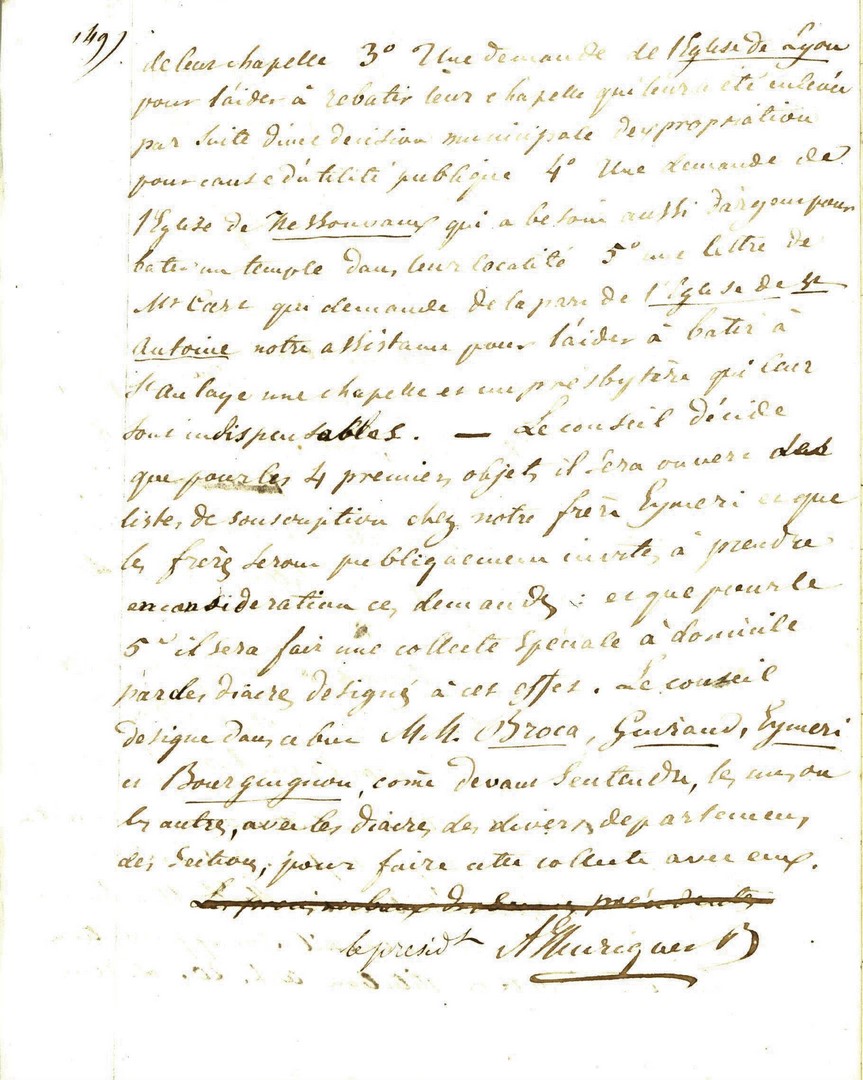 149)
de leur chapelle 3° Une demande de l'Eglise de Lyon
pour l'aider à rebatir leur chapelle qui leur a été enlevée
par suite d'une decision municipale d'expropriation
pour cause d'utilité publique 4° Une demande de
l'Eglise de Nessonvaux qui a besoin aussi d'argent pour
batir un temple dans leur localité 5° une lettre de
Mr Carr qui demande de la part de l'Eglise de St
Antoine notre assistance pour l'aider à batir à
St Aulaye une chapelle et un presbytère qui leur
sont indispensables. — Le conseil décide
que pour les 4 premiers objets il sera ouvert des
listes de souscription chez notre frère Eymeri et que
les frères seront publiquement invités à prendre
en consideration ces demandes : et que pour le
5° il sera fait une collecte speciale à domicile
par les diacres designés à cet effet. Le conseil
designe dans ce but M.M. Broca, Guiraud, Eymeri
et Bourguignon, come devant s'entendre, les uns ou
les autres, avec les diacres des divers departemens
des Sections, pour faire cette collecte avec eux.
le presidt